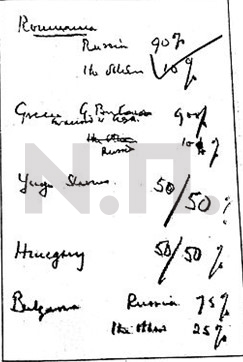 Roumania
Russia 90%
The others 10%
Greece G. Britain 90%
(in accord with U.S.A.)
The others
Russia 10%
Yugo Slavia 50/50%
Hungary 50/50%
Bulgaria Russia 75%
The others 25%
Н.П.